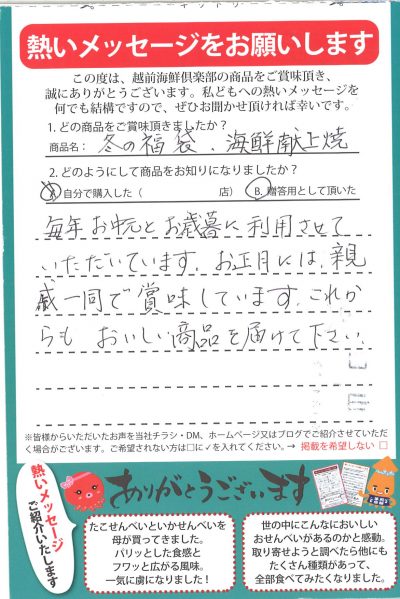 熱いメッセージをお願いします
この度は、越前海鮮倶楽部の商品をご賞味頂き、
誠にありがとうございます。私どもへの熱いメッセージを
何でも結構ですので、ぜひお聞かせ頂ければ幸いです。
1. どの商品をご賞味頂きましたか？
商品名： 冬の福袋、海鮮献上焼
2. どのようにして商品をお知りになりましたか？
A. 自分で購入した（ 店） B. 贈答用として頂いた
毎年お中元とお歳暮に利用させて
いただいています。お正月には、親
戚一同で賞味しています。これか
らも おいしい商品を届けて下さい。
※皆様からいただいたお声を当社チラシ・DM、ホームページ又はブログでご紹介させていただ
く場合がございます。ご希望されない方は□に✓を入れてください。→ 掲載を希望しない □
熱いメッセージ
ご紹介いたします
ありがとうございます
たこせんべいといかせんべいを
母が買ってきました。
パリッとした食感と
フワッと広がる風味。
一気に虜になりました！
世の中にこんなにおいしい
おせんべいがあるのかと感動。
取り寄せようと調べたら他にも
たくさん種類があって、
全部食べてみたくなりました。